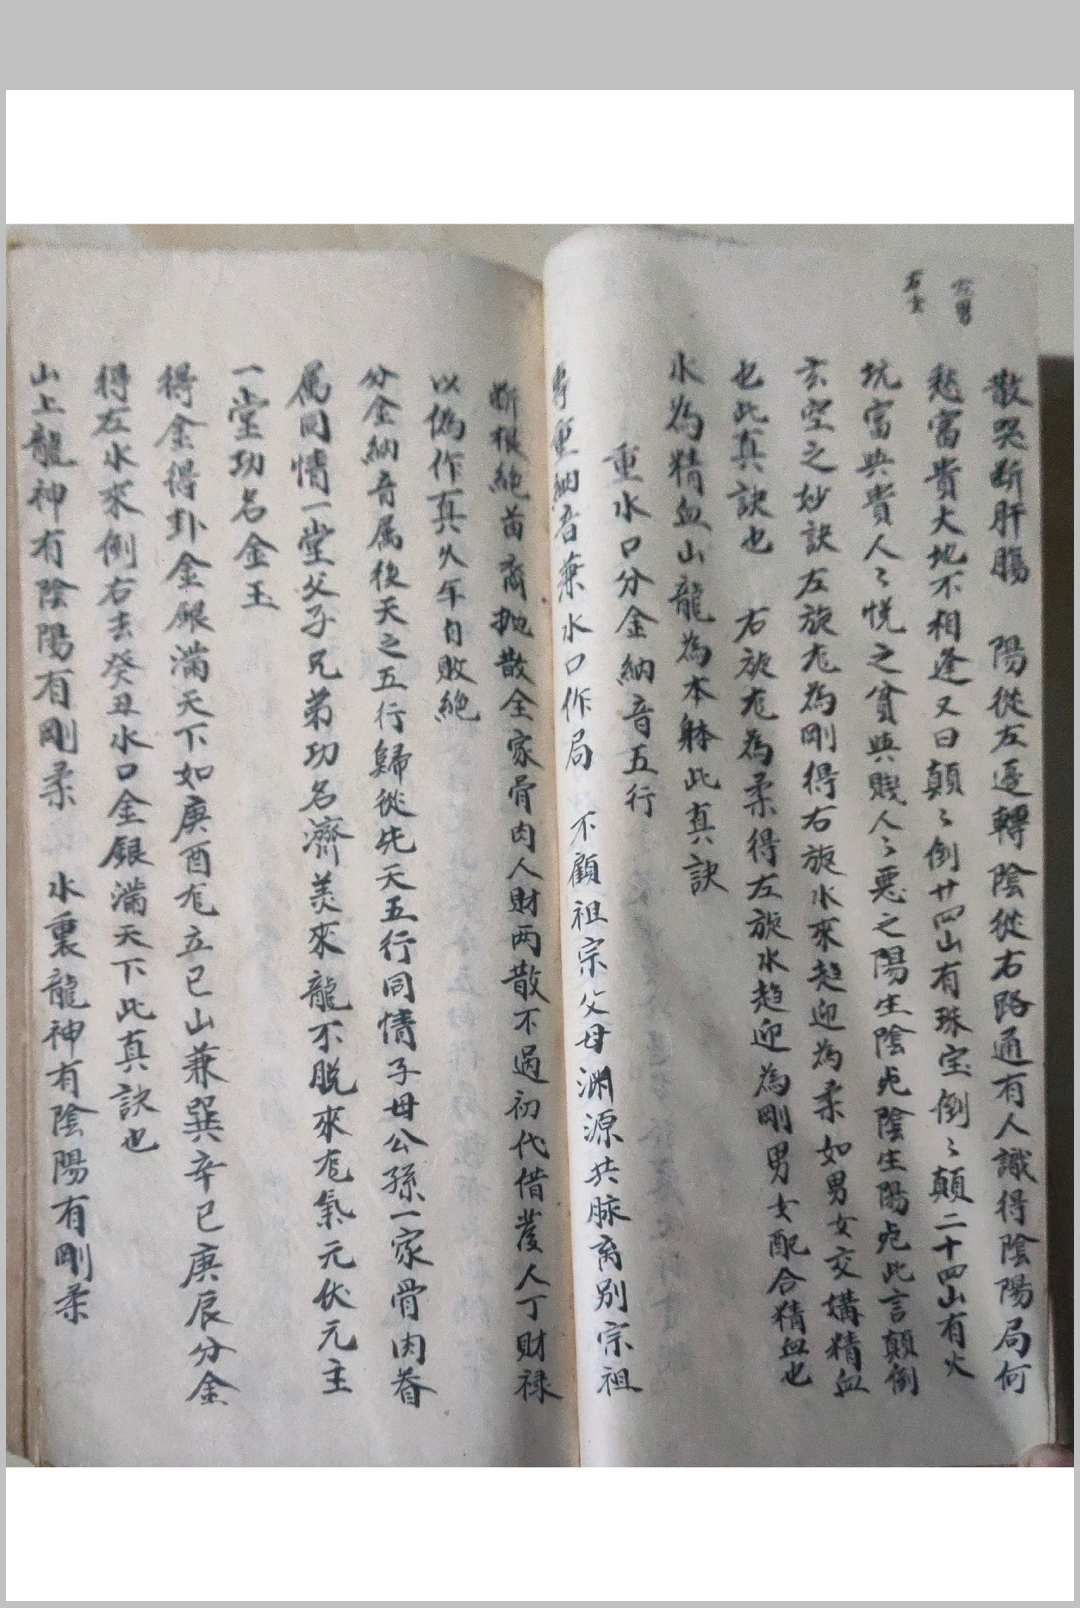 左男
右女
散哭断肝腸　陽從左邊轉陰從右路通有人識得陰陽局何
愁富貴大地不相逢又曰顛〻倒廿四山有珠宝倒〻顛二十四山有火
坑富與貴人〻悦之貧與賤人〻惡之陽生陰死陰生陽死此言顛倒
玄空之妙訣左旋龙為剛得右旋水來趋迎為柔如男女交媾精血
也此真訣也　右旋龙為柔得左旋水趋迎為剛男女配合精血也
水為精血山龍為本躰此真訣
重水口分金納音五行
專重納音兼水口作局　不顧祖宗父母渊源共脉离别宗祖
断根絶苗裔抛散全家骨肉人財两散不過初代借發人丁財禄
以偽作真久年自敗絶
分金納音属後天之五行歸從先天五行同情子母公孫一家骨肉眷
属同情一堂父子兄弟功名濟美來龍不脱來龙氣元伏元主
一堂功名金玉
得金得卦金銀滿天下如庚酉龙立巳山兼巽辛巳庚辰分金
得左水來倒右去癸丑水口金銀滿天下此真訣也
山上龍神有陰陽有剛柔　水裏龍神有陰陽有剛柔